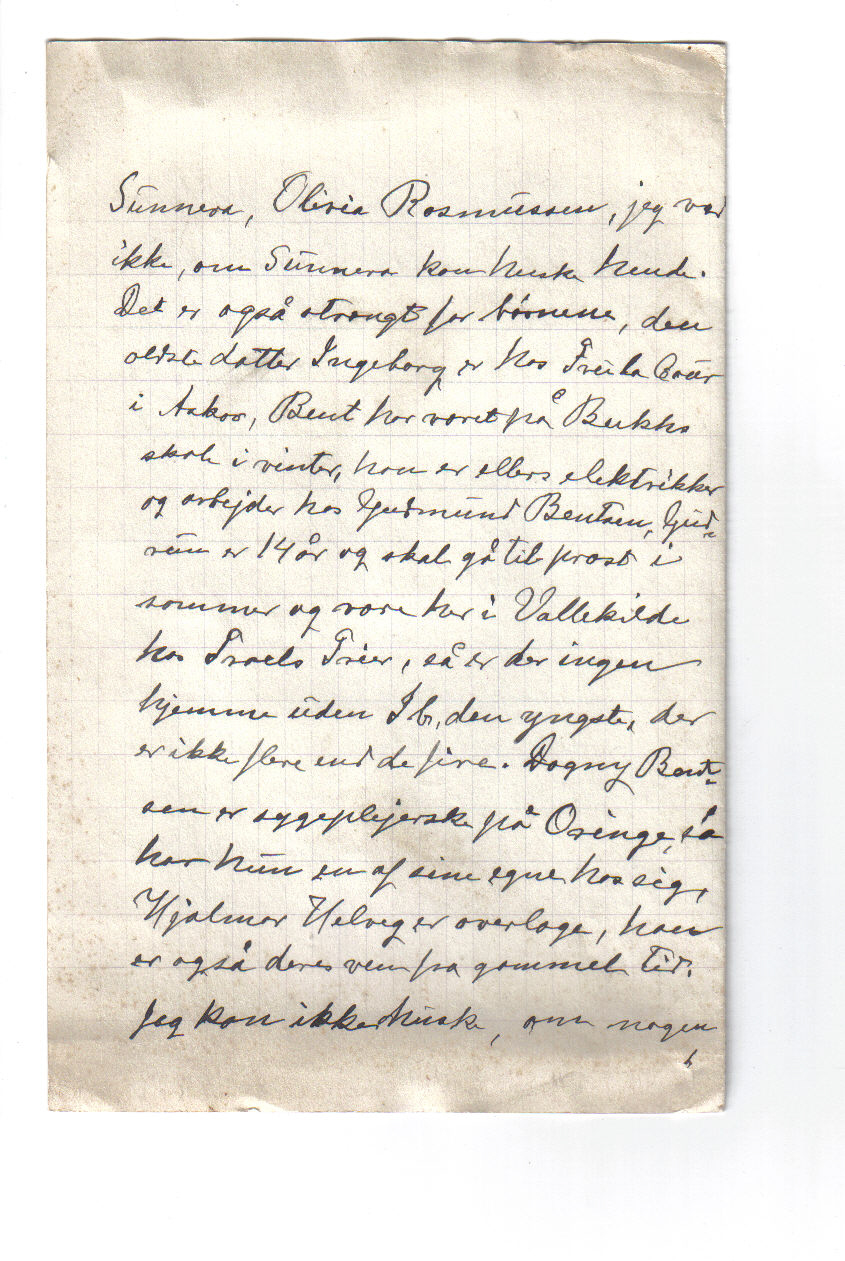 Sunnera, Olivia Rasmussen, jeg ved
ikke, om Sunnera kan huske hende.
Det er også strengt for børnene, den
ældste datter Ingeborg er hos Frieda Baur
i Askov, Bent har været på Bukhs
skole i vinter, han er ellers elektrikker
og arbejder hos Gudmund Bentsen, Gud-
run er 14 år og skal gå til præst i
sommer og være her i Vallekilde
hos Troels Trier, så er der ingen
hjemme uden Ib, den yngste, der
er ikke flere end de fire. Dagny Bent-
sen er sygeplejerske på Oringe, så
har hun en af sine egne hos sig,
Hjalmar Helveg er overlæge, han
er også deres ven fra gammel tid.
Jeg kan ikke huske, om nogen